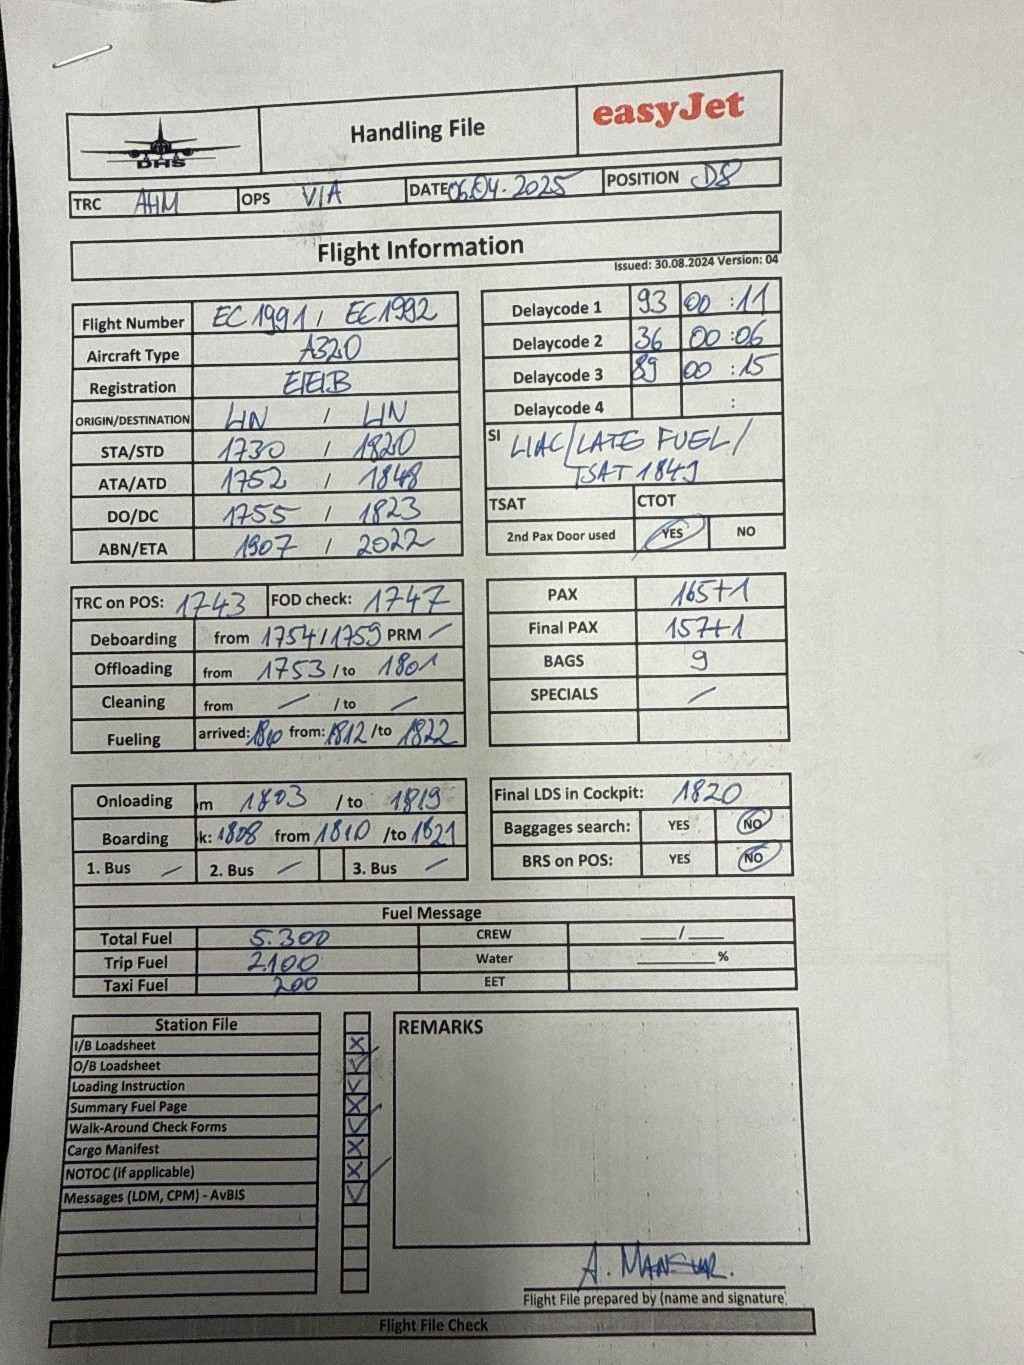 DHS
Handling File
easyJet
TRC AHM OPS VIA DATE 06.04.2025 POSITION D8
Flight Information
Issued: 30.08.2024 Version: 04
Flight Number EC 1991 / EC 1992
Aircraft Type A320
Registration
ORIGIN/DESTINATION LIN / LIN
STA/STD 1730 / 1820
ATA/ATD 1752 / 1848
DO/DC 1755 / 1823
ABN/ETA 1907 / 2022
Delaycode 1 93 00 : 11
Delaycode 2 36 00 : 06
Delaycode 3 89 00 : 15
Delaycode 4 :
SI LIAC/LATE FUEL/
TSAT 1849
TSAT CTOT
2nd Pax Door used YES NO
TRC on POS: 1743 FOD check: 1747
Deboarding from 1754 / 1759 PRM /
Offloading from 1753 / to 1801
Cleaning from / / to /
Fueling arrived: 1810 from: 1812 /to 1822
PAX 165+1
Final PAX 157+1
BAGS 9
SPECIALS /
Onloading m 1803 / to 1819
Boarding k: 1808 from 1810 /to 1821
1. Bus / 2. Bus / 3. Bus /
Final LDS in Cockpit: 1820
Baggages search: YES NO
BRS on POS: YES NO
Fuel Message
Total Fuel 5.300 CREW ___/___
Trip Fuel 2.100 Water ______ %
Taxi Fuel 200 EET
Station File
I/B Loadsheet X
O/B Loadsheet ✓
Loading Instruction ✓
Summary Fuel Page X
Walk-Around Check Forms ✓
Cargo Manifest X
NOTOC (if applicable) X
Messages (LDM, CPM) - AvBIS ✓
REMARKS
A.
Flight File prepared by (name and signature)
Flight File Check